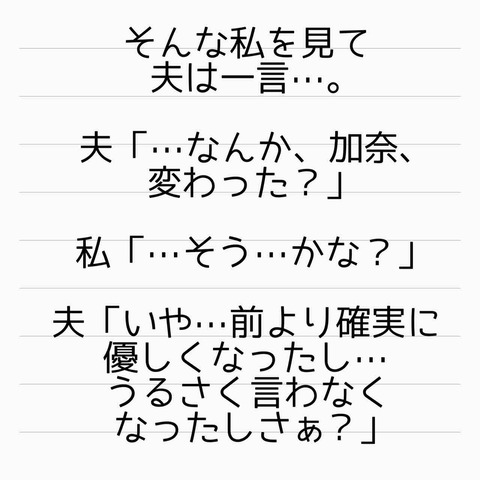 そんな私を見て
夫は一言…。
夫「…なんか、加奈、
変わった？」
私「…そう…かな？」
夫「いや…前より確実に
優しくなったし…
うるさく言わなく
なったしさぁ？」